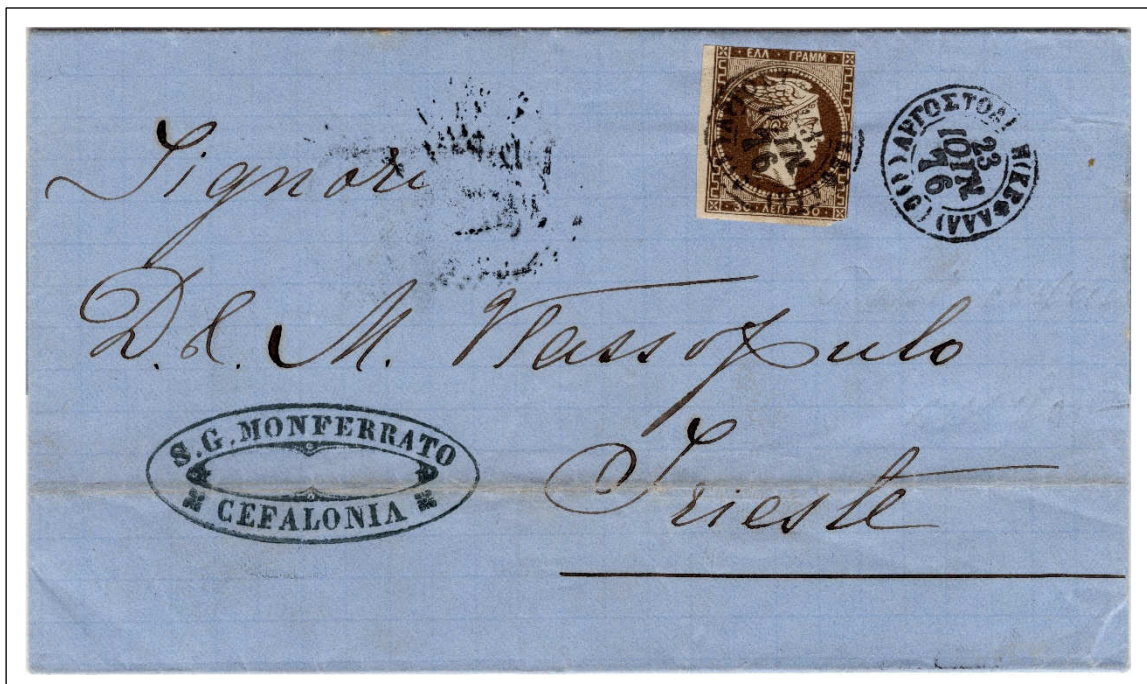 ΕΛΛ · ΓΡΑΜΜ
ΛΕΠΤ · 30
ΑΡΓΟΣΤΟΛΙ
(ΚΕΦΑΛΛ)
23
ΙΟΥΝ
76
Signori
D. & M. Vlassopulo
Trieste
S. G. MONFERRATO
CEFALONIA